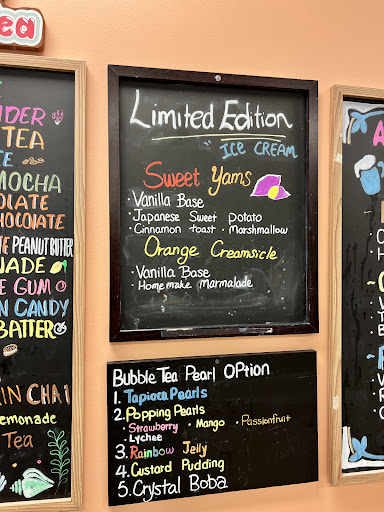 ea
DER
TEA
CE
MOCHA
OLATE
CHOCONATE
TE PEANUT BUTTER
NADE
E GUM
N CANDY
BATTER
IN CHAI
emonade
Tea
Limited Edition
"ICE CREAM
Sweet Yams
·Vanilla Base
·Japanese Sweet potato
·Cinnamon toast ·Marshmallow
Orange Creamsicle
·Vanilla Base
·Homemake Marmalade
Bubble Tea Pearl OPtion
1. Tapioca Pearls
2. Popping Pearls
·Strawberry ·Mango ·Passionfruit
·Lychee
3. Rainbow Jelly
4. Custard Pudding
5. Crystal Boba